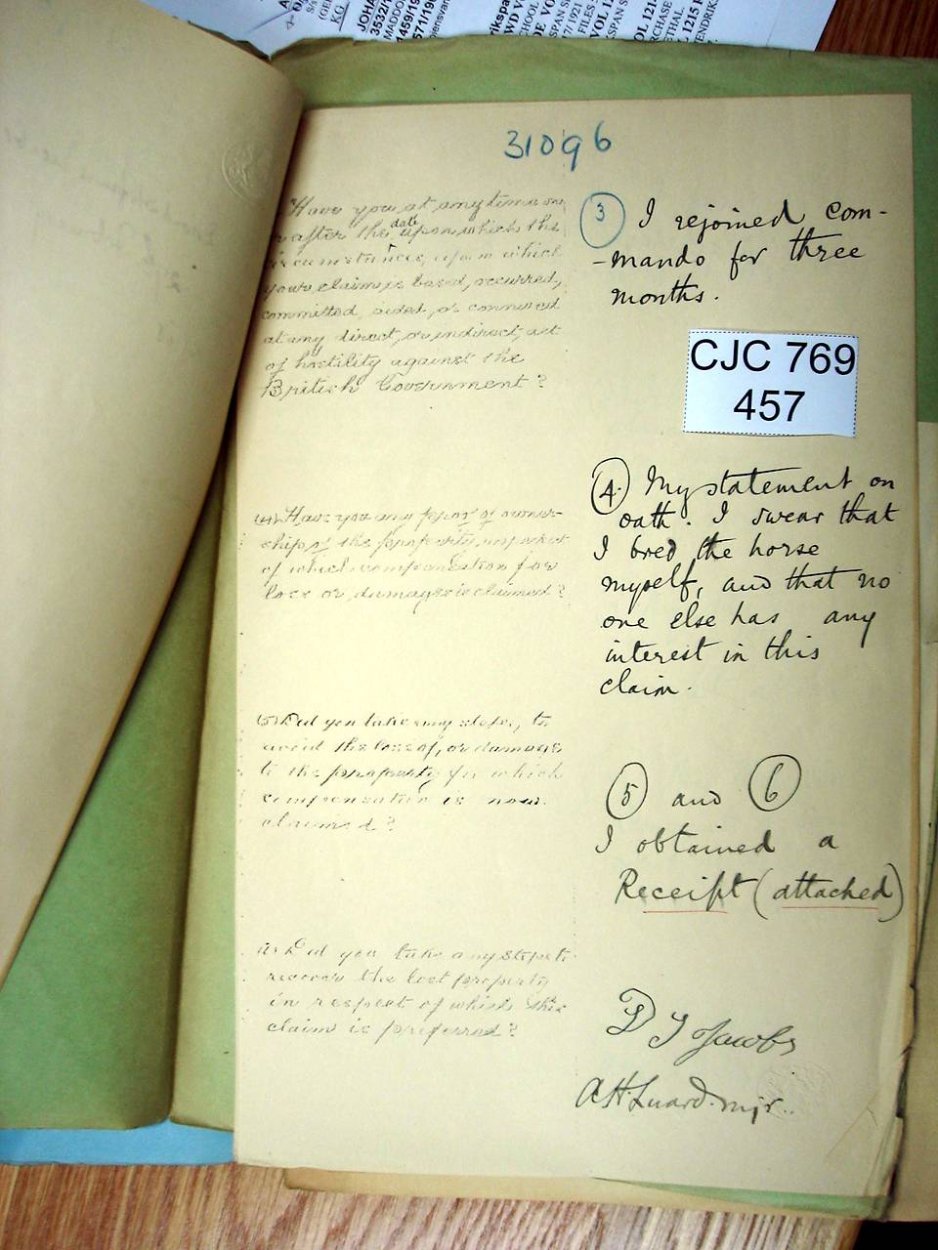 31096
Have you at any time on
or after the date upon which the
circumstances, upon which
your claim is based, occurred,
committed, aided, or connived
at any direct, or indirect, act
of hostility against the
British Government?
(3) I rejoined com-
-mando for three
months.
CJC 769
457
(4) Have you any proof of owner-
ship of the property, in respect
of which compensation for
loss or damage is claimed?
(4) My statement on
oath. I swear that
I bred the horse
myself, and that no
one else has any
interest in this
claim.
(5) Did you take any steps, to
avoid the loss of, or damage
to the property for which
compensation is now
claimed?
(5) and (6)
I obtained a
Receipt (attached)
Did you take any steps to
recover the lost property
in respect of which this
claim is preferred?
D J Jacobs
A H Luard. Mjr.